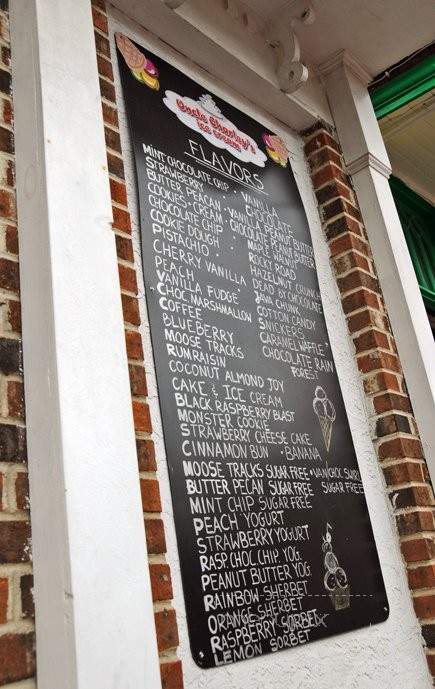 Uncle Charley's
Ice Cream
FLAVORS
MINT CHOCOLATE CHIP · VANILLA
STRAWBERRY · CHOCOLATE
BUTTER PEACAN · VAN. PEANUT BUTTER
COOKIES + CREAM · CHOCOLATE PEANUT BUTTER
CHOCOLATE CHIP · MAPLE WALNUT
COOKIE DOUGH · ROCKY ROAD
PISTACHIO · HAZELNUT CRUNCH
CHERRY VANILLA DEAD BY CHOCOLATE
PEACH JAVA CHUNK
VANILLA FUDGE COTTON CANDY
CHOC. MARSHMALLOW SNICKERS
COFFEE CARAMEL WAFFLE
BLUEBERRY CHOCOLATE RAIN
MOOSE TRACKS FOREST
RUM RAISIN
COCONUT ALMOND JOY
CAKE & ICE CREAM
BLACK RASPBERRY BLAST
MONSTER COOKIE
STRAWBERRY CHEESE CAKE
CINNAMON BUN · BANANA
MOOSE TRACKS SUGAR FREE · VAN/CHOC SWIRL
BUTTER PECAN SUGAR FREE SUGAR FREE
MINT CHIP SUGAR FREE
PEACH YOGURT
STRAWBERRY YOGURT
RASP. CHOC. CHIP YOG.
PEANUT BUTTER YOG.
RAINBOW SHERBET
ORANGE SHERBET
RASPBERRY SORBET
LEMON SORBET